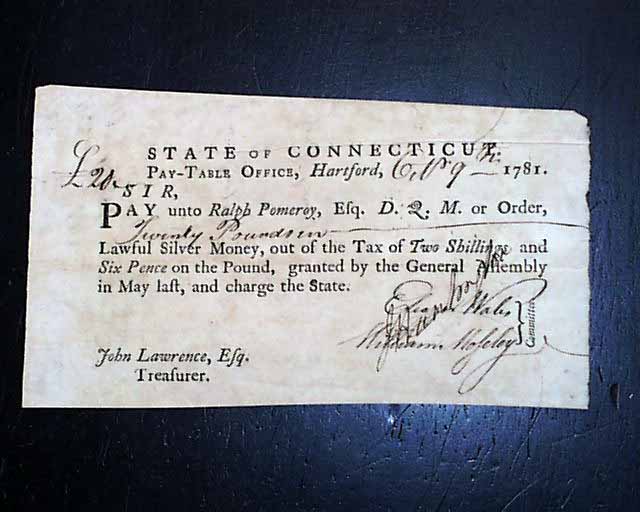 STATE OF CONNECTICUT,
PAY-TABLE OFFICE, Hartford, 9th 1781.
£20
SIR,
PAY unto Ralph Pomeroy, Esq. D. Q. M. or Order,
Twenty Pounds in
Lawful Silver Money, out of the Tax of Two Shillings and
Six Pence on the Pound, granted by the General Assembly
in May last, and charge the State.
Eleazr Wales
William Moseley
Committee
John Lawrence, Esq.
Treasurer.